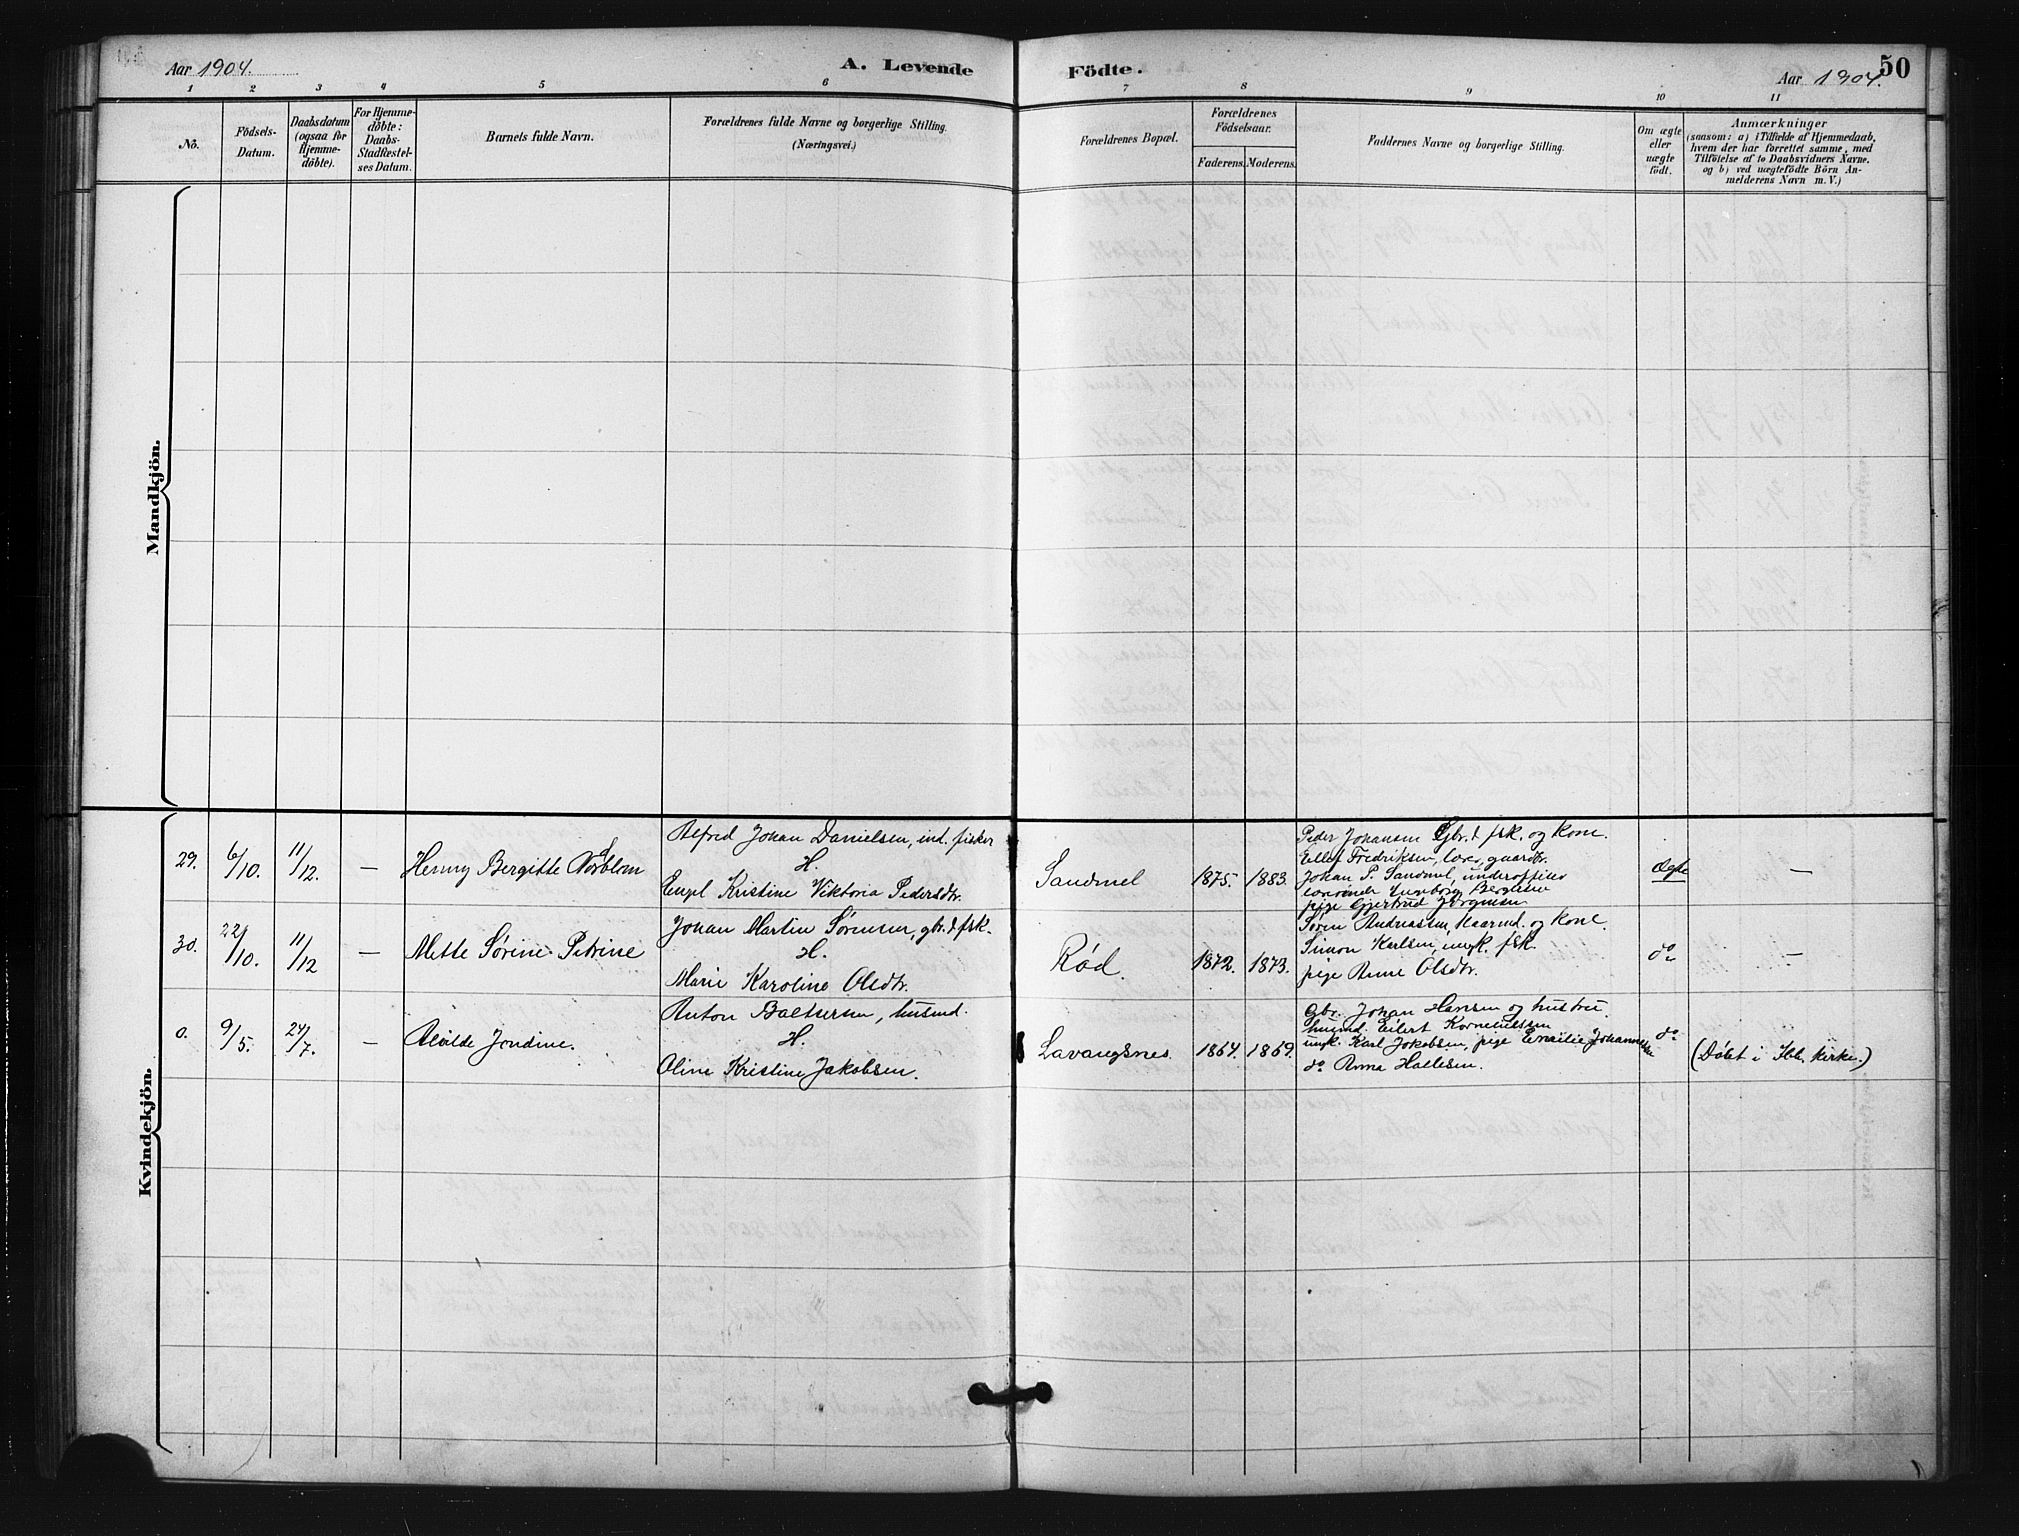 Aar 1904.
A. Levende
Födte.
Aar 1904.
50
1 2 3 4 5 6 7 8 9 10 11
No.
Födsels-
Datum.
Daabsdatum
(ogsaa for
Hjemme-
döbte).
For Hjemme-
döbte:
Daabs-
Stadfæstel-
ses Datum.
Barnets fulde Navn.
Forældrenes fulde Navne og borgerlige Stilling.
(Næringsvei.)
Forældrenes Bopæl.
Forældrenes
Födselsaar.
Faderens. Moderens.
Faddernes Navne og borgerlige Stilling.
Om ægte
eller
uægte
födt.
Anmærkninger
(saasom: a) i Tilfælde af Hjemmedaab,
hvem der har forrettet samme, med
Tilföielse af to Daabsvidners Navne,
og b) ved uægtefödte Börn An-
melderens Navn m. V.)
Mandkjön.
Kvindekjön.
29.
6/10.
11/12.
—
Henny Bergitte Nordblom
Alfred Johan Danielsen, ind. fisker
H.
Engel Kristine Viktoria Pedersdtr.
Sandmel
1875. 1883.
Peder Johansen Gbr. & fsk. og Kone.
Ellef Fredriksen, gaardbr.
Johan P. Sandmel, underofficer
Ingeborg Bergitte
pige Gjertrud Jørginsen
ægte
—
30.
22/10.
11/12
—
Mette Sørine Petrine
Johan Martin Sørensen, gbr. & fsk.
H.
Marie Karoline Olsdtr.
Rød.
1872. 1873.
Søren Andreassen, Kaarmd. og Kone.
Simon Karlsen, ungk. fsk.
pige Anne Olsdtr.
do
—
0.
9/5.
24/7.
—
Alvilde Jondine.
Anton Baltsersen, husmd.
H.
Oline Kristine Jakobsen.
Lavangsnes.
1864. 1869.
Gbr. Johan Hansen og hustru
husmd. Eilert Korneliussen
ungk. Karl Jokobsen, pige Emilie Johannesen
do Anna Hallesen.
do
(Døbt i Ibb. Kirke.)